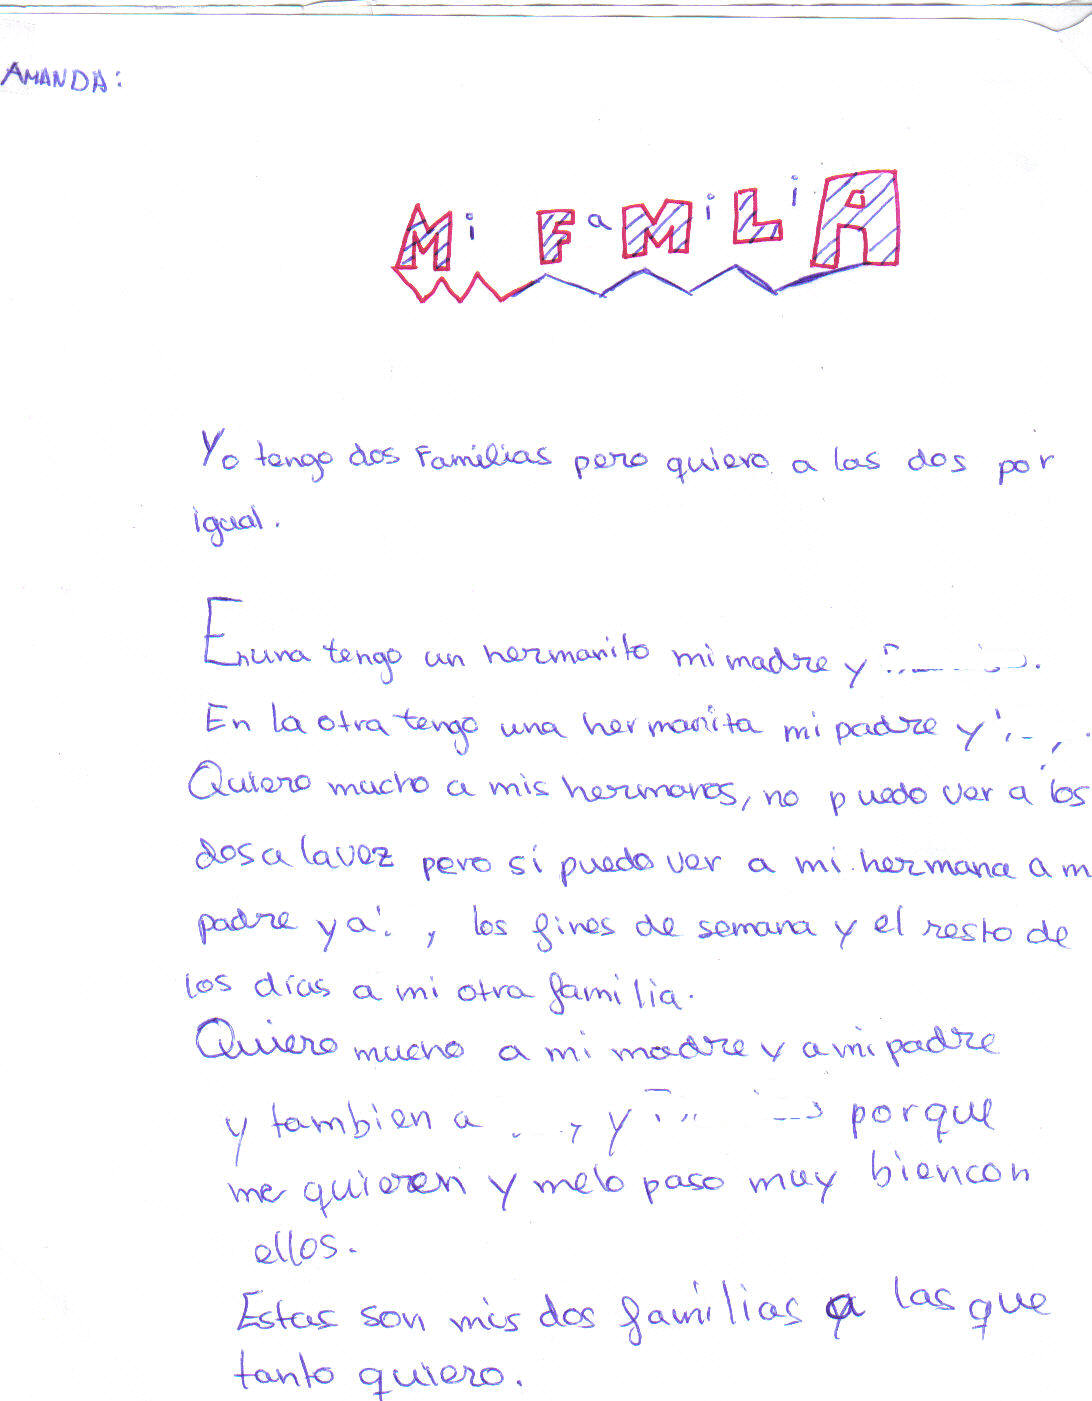 AMANDA:
Mi FaMiLiA
Yo tengo dos Familias pero quiero a las dos por
igual.
Enuna tengo un hermanito mi madre y
En la otra tengo una hermanita mi padre y
Quiero mucho a mis hermanos, no puedo ver a los
dos a lavez pero sí puedo ver a mi hermana a m
padre y a , los fines de semana y el resto de
los días a mi otra familia.
Quiero mucho a mi madre y a mi padre
y tambien a y porque
me quieren y melo paso muy biencon
ellos.
Estas son mis dos familias a las que
tanto quiero.